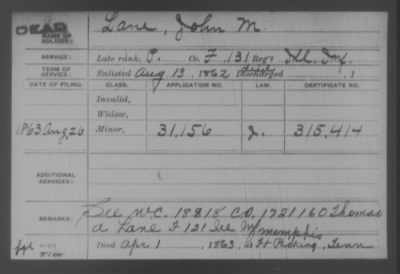 DEAD
NAME OF SOLDIER: Lane, John M
SERVICE: Late rank, P. Co. F, 131 Reg't Ill. Inf.
TERM OF SERVICE: Enlisted Aug 13, 1862 Discharged died, 1
DATE OF FILING. CLASS. APPLICATION NO. LAW. CERTIFICATE NO.
Invalid,
Widow,
1863 Aug. 26 Minor, 31,156 315,414
ADDITIONAL SERVICES:
REMARKS: See W.C. 18818 C.O. 1721160 Thomas
a Lane F 121 Ill
Memphis
Died Apr 1, 1863, at Ft Pickering, Tenn